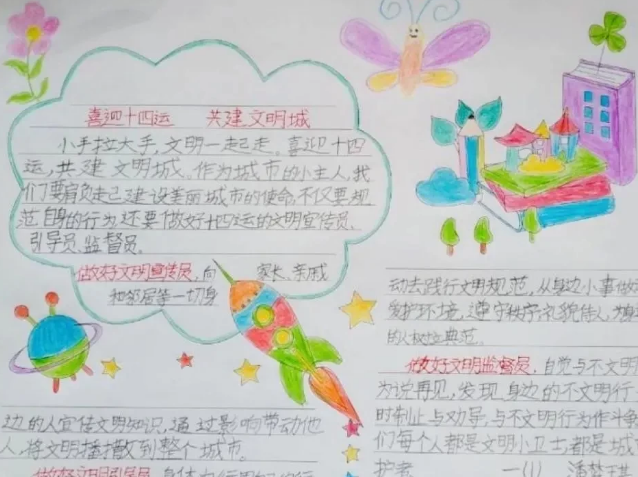 喜迎十四运 共建文明城
小手拉大手,文明一起走。喜迎十四
运,共建文明城。作为城市的小主人,我
们要肩负走己建设美丽城市的使命,不仅要规
范自身的行为,还要做好十四运的文明宣传员,
引导员,监督员。
做好文明宣传员,向 家长、亲戚
和邻居等一切身
边的人宣传文明知识,通过影响带动他
人,将文明播撒到整个城市。
做好文明引导员
动去践行文明规范,从身边小事做
爱护环境、遵守秩序、礼貌待人,为
的人树立典范。
做好文明监督员,自觉与不文明
为说再见,发现身边的不文明行
时制止与劝导,与不文明行为作斗争
们每个人都是文明小卫士,都是城
护者 一(1)